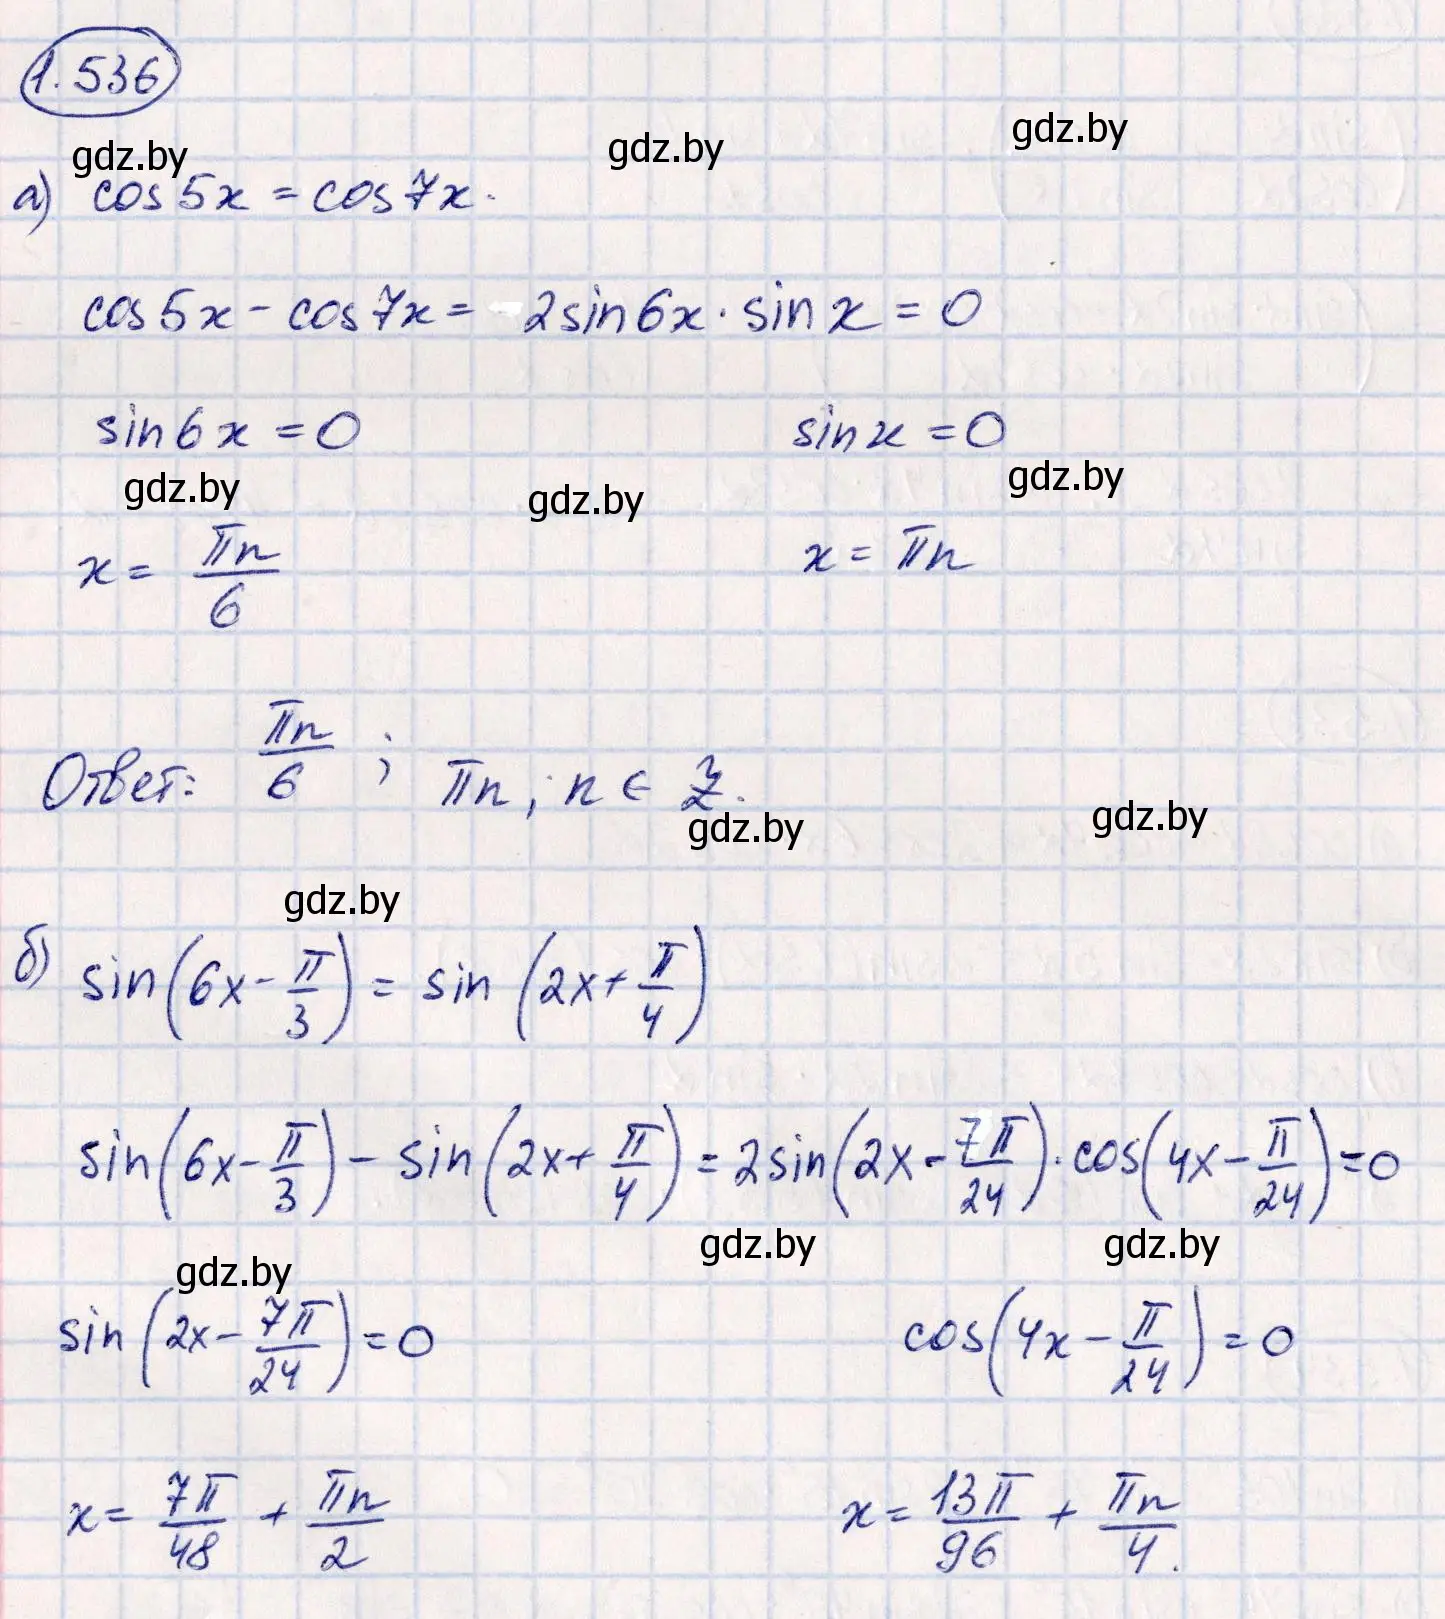 1.536
gdz.by gdz.by gdz.by
а) cos5x = cos7x.
cos5x - cos7x = 2sin6x · sin x = 0
sin6x = 0 sinx = 0
gdz.by gdz.by gdz.by
x = πn/6 x = πn
Ответ: πn/6 ; πn ; n ∈ Z.
gdz.by gdz.by
gdz.by
б) sin(6x - π/3) = sin (2x + π/4)
sin(6x - π/3) - sin(2x + π/4) = 2sin(2x - 7π/24) · cos(4x - π/24) = 0
gdz.by gdz.by gdz.by
sin(2x - 7π/24) = 0 cos(4x - π/24) = 0
x = 7π/48 + πn/2 x = 13π/96 + πn/4.